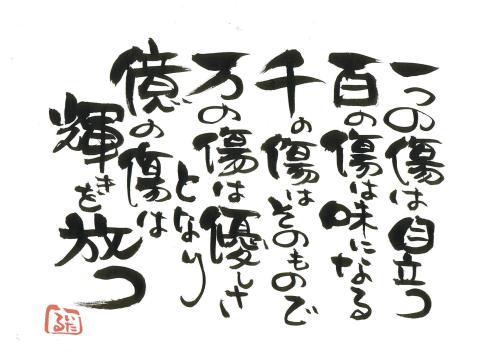 一つの傷は目立つ
百の傷は味になる
千の傷はそのもので
万の傷は優しさ
となり
億の傷は
輝きを放つ
いたる